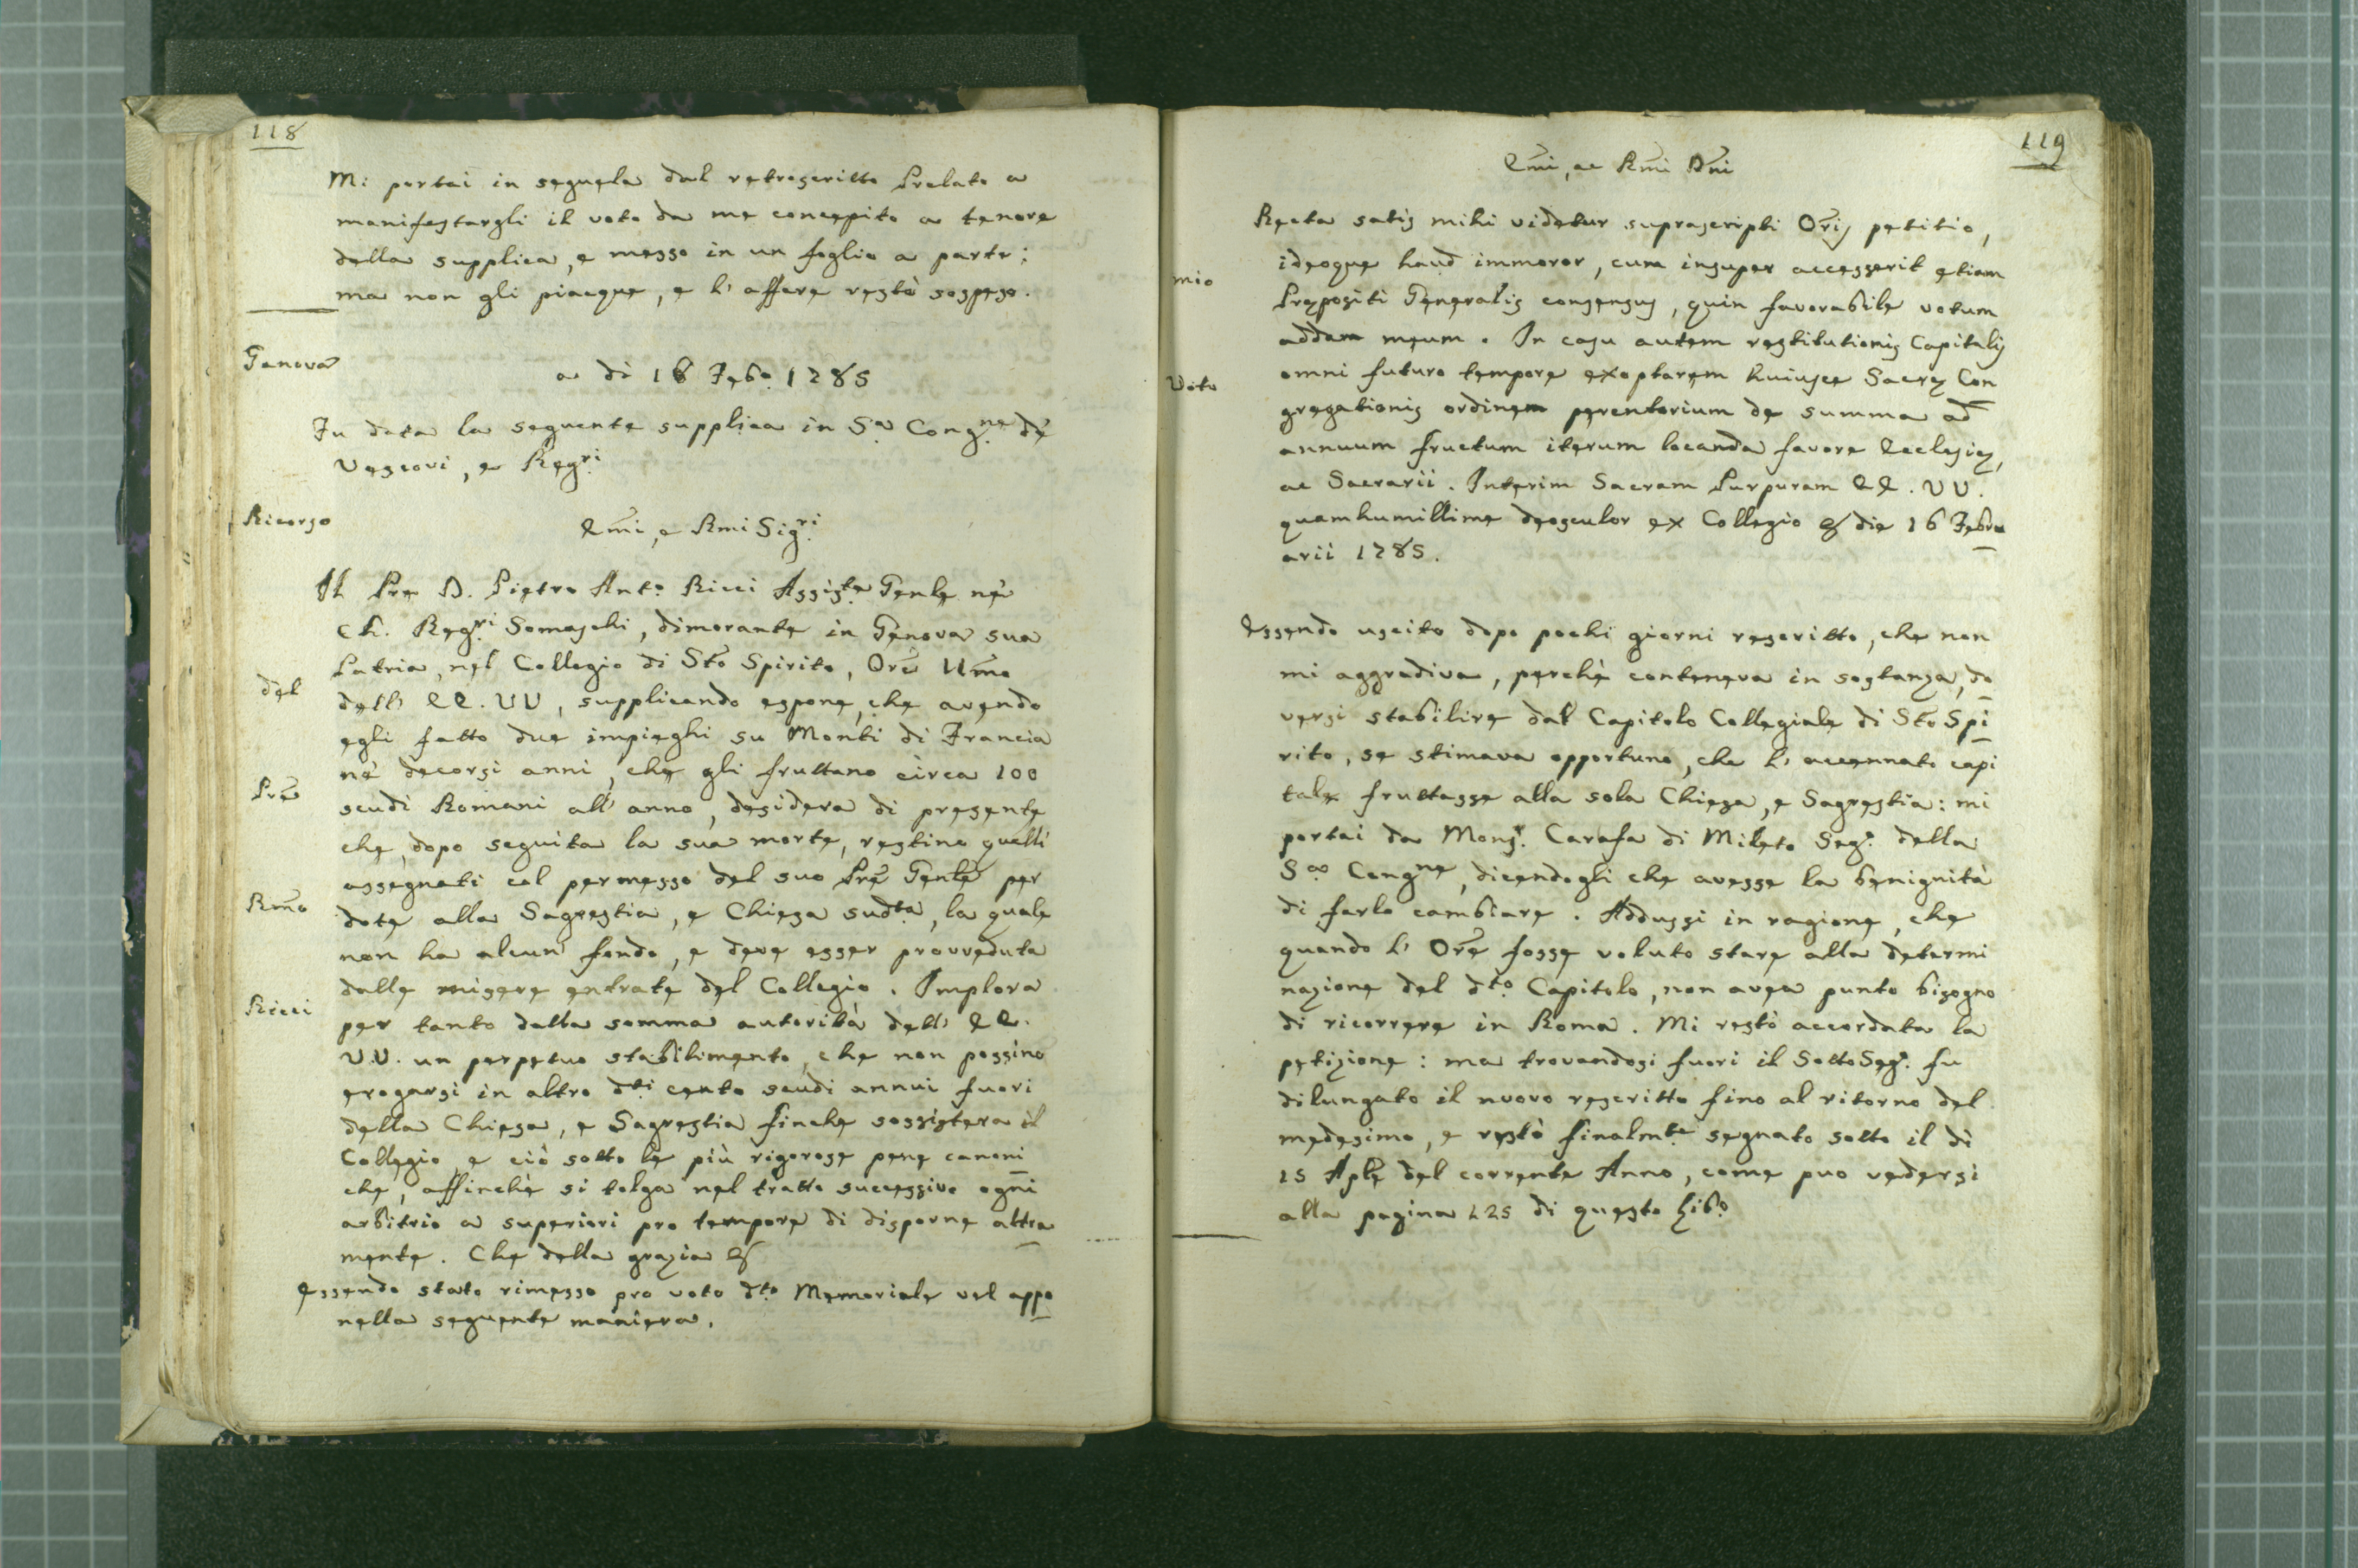 118
Mi portai in seguela dal retroscritto Prelato a
manifestargli il voto da me concepito a tenore
della supplica, e messo in un foglio a parte;
ma non gli piacque, e l' affare restò sospeso.
Genova
a dì 16 Febo. 1785
Fu data la seguente supplica in Sa. Congne. de'
Vescovi, e Regri.
Ricorso
Emi, e Rmi Sigri.
Il Pre D. Pietro Anto. Ricci Assiste. Genle ne'
Ch. Regri. Somaschi, dimorante in Genova sua
Patria, nel Collegio di Sto Spirito, Ore Umo
del
dell' EE. VV, supplicando espone, che avendo
egli fatto due impieghi su Monti di Francia
ne' decorsi anni, che gli fruttano circa 100
Pre
scudi Romani all' anno, desidera di presente
che, dopo seguita la sua morte, restino quelli
assegnati col permesso del suo Pre Genle per
Rmo
dote alla Sagrestia, e Chiesa sudta, la quale
non ha alcun fondo, e deve esser provveduta
dalle misere entrate del Collegio. Implora
Ricci
per tanto dalla somma autorità dell' EE.
VV. un perpetuo stabilimento, che non possino
erogarsi in altro dti. cento scudi annui fuori
della Chiesa, e Sagrestia finche sossistera il
Collegio, e ciò sotto le più rigorose pene canoni
che, affinchè si tolga nel tratto successivo ogni
arbitrio a superiori pro tempore di disporne altra
mente. Che della grazia &
Essendo stato rimesso pro voto dto. Memoriale vel appo
nella seguente maniera.
119
Emi, ac Rmi Dni
Recta satis mihi videtur suprascripti Oris petitio,
ideoque haud immoror, cum insuper accesserit etiam
mio
Præpositi Generalis consensus, quin favorabile votum
addam meum. In casu autem restitutionis Capitalis
omni futuro tempore exoptarem huiusce Sacræ Con
Voto
gregationis ordinem perentorium de summa ad
annuum fructum iterum locanda favore Ecclesiæ,
ac Sacrarii. Interim Sacram Purpuram EE. VV.
quamhumillime deosculor ex Collegio & die 16 Febru
arii 1785.
Essendo uscito dopo pochi giorni rescritto, che non
mi aggradiva, perchè conteneva in sostanza, do
versi stabilire dal Capitolo Collegiale di Sto Spi
rito, se stimava opportuno, che l' accennato capi
tale fruttasse alla sola Chiesa, e Sagrestia: mi
portai da Monsr. Carafa di Mileto Segr. della
Sa Congne, dicendogli che avesse la benignità
di farlo cambiare. Addussi in ragione, che
quando l' Ore fosse voluto stare alla determi
nazione del dto. Capitolo, non avea punto bisogno
di ricorrere in Roma. Mi restò accordata la
petizione: ma trovandosi fuori il SottoSegr. fu
dilungato il nuovo rescritto fino al ritorno del
medesimo, e restò finalmte. segnato sotto il dì
15 Aple del corrente Anno, come puo vedersi
alla pagina 125 di questo Libo.